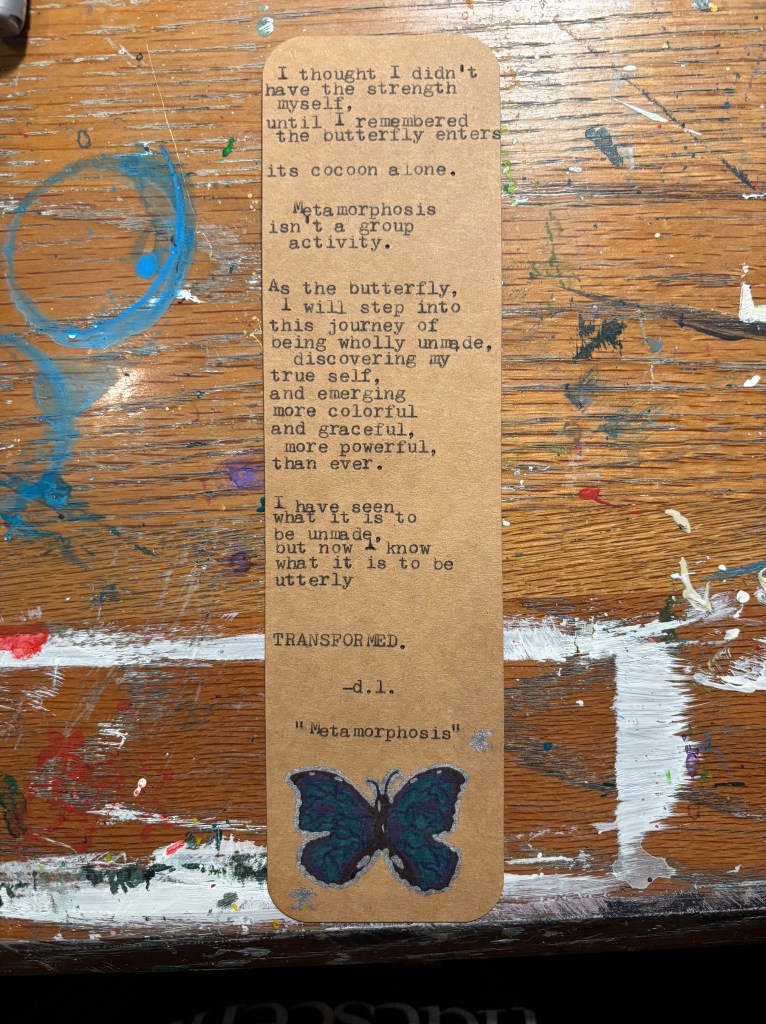 I thought I didn't
have the strength
myself,
until I remembered
the butterfly enters
its cocoon alone.
Metamorphosis
isn't a group
activity.
As the butterfly,
I will step into
this journey of
being wholly unmade,
discovering my
true self,
and emerging
more colorful
and graceful,
more powerful,
than ever.
I have seen
what it is to
be unmade,
but now I know
what it is to be
utterly
TRANSFORMED.
-d.l.
"Metamorphosis"